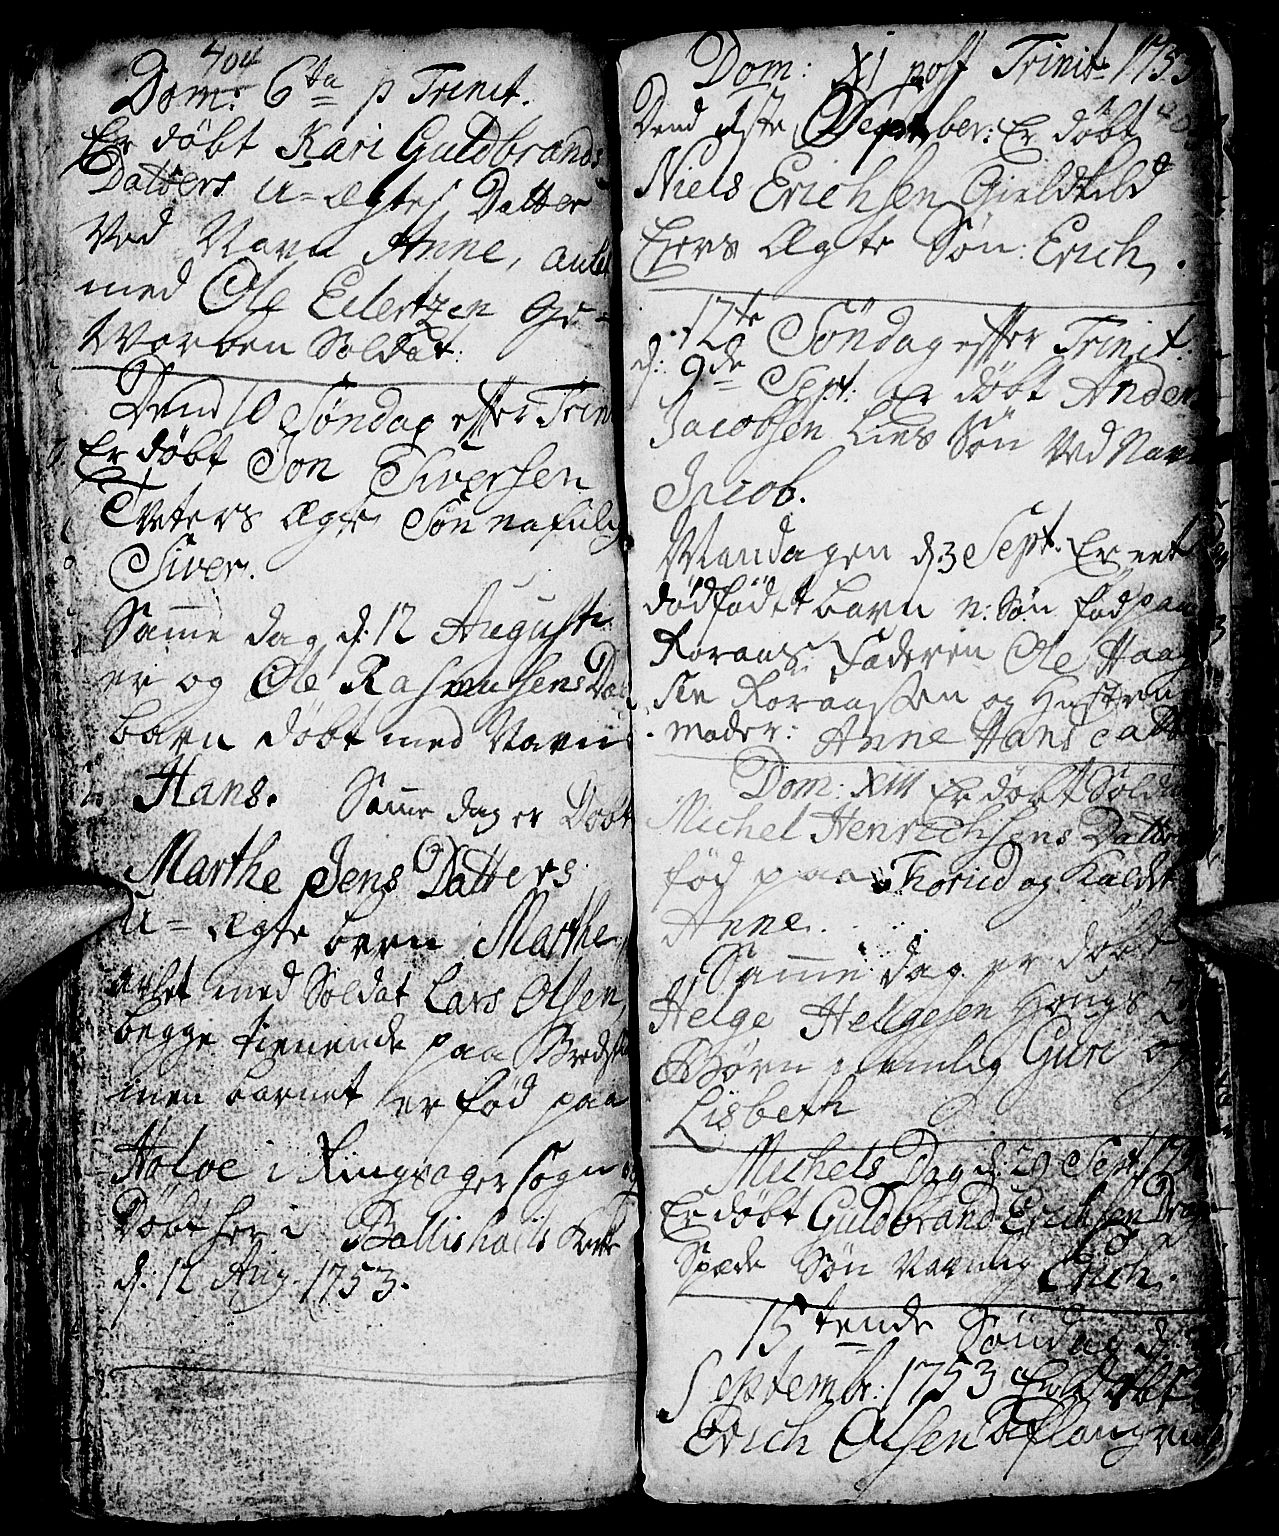 404
Dom: 6ta p Trinit.
Er döbt Kari Guldbrands
Datters U=Ægte Datter
Ved Navn Anne, aulet
med Ole Eilertzen Ge=
Worben Soldat.
Dend 10 Søndag effter Trin
Er döbt Jon Siversen
Tveters Ægte Søn nafnlig
Siver.
Samme dag d: 12 Augusti
er og Ole Rasmusens
barn döbt med Navn
Hans. Samme dag er Döbt
Marthe Jens Datters
U=Ægte barn Marthe,
aflet med Soldat Lars Olsen,
begge tienende paa
men barnet er föd paa
Holve i Ringsager sogn og
Döbt her i Ballishools Kirke
d: 12 Aug. 1753.
Dom: XI post Trinit 1753
Dend 2ste September: Er döbt
Niels Erichsen Gieldkild
Eiers Ægte Søn: Erich.
12te Söndag effter Trinit.
d: 9de Sept. er döbt Anders
Jacobsen Lies Søn Ved Navn
Jacob.
Mandagen d. 3 Sept. Er eet
dödfödet barn n: Søn föd paa
Koraas: Faderen Ole Haag
sen Koraassen og Hustruen
moder: Anne Hans datter
Dom: XIII Er döbt Soldat
Michel Henrichsens Datter
föd paa Thorud og Kaldet
Anne.
Samme dag er döbt
Helge Hellgesen Hougs 2
Börn nemlig Guri og
Lisbeth
Michels Dag d: 29 Sept. 1753
Er döbt Guldbrand Erichsen
Spæde Søn Navnlig Erich.
15tende Söndag d:
Septembr: 1753 Er döbt
Erich Olsen